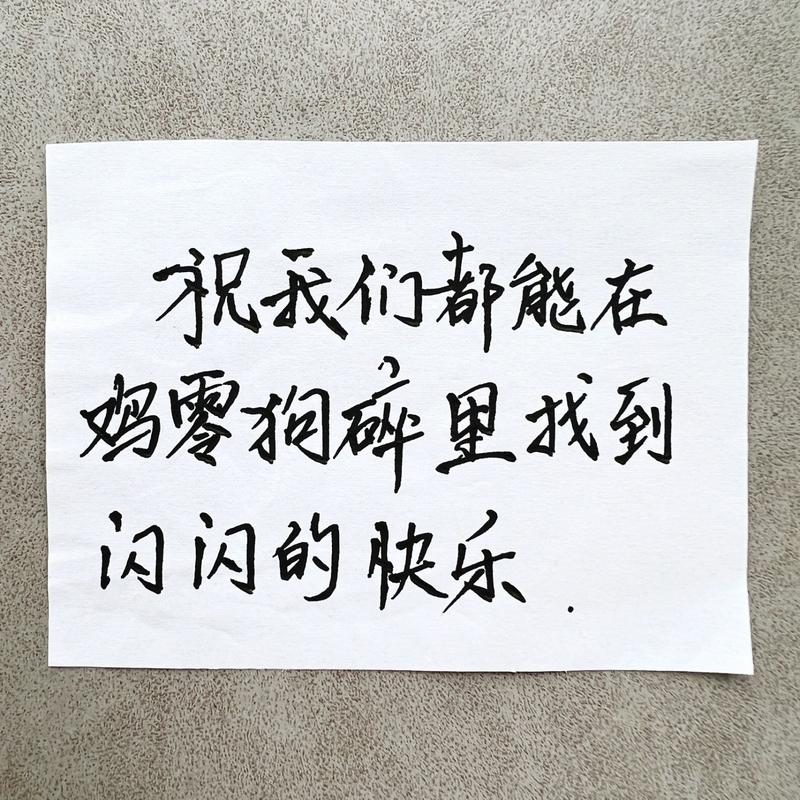 祝我们都能在
鸡零狗碎里找到
闪闪的快乐.